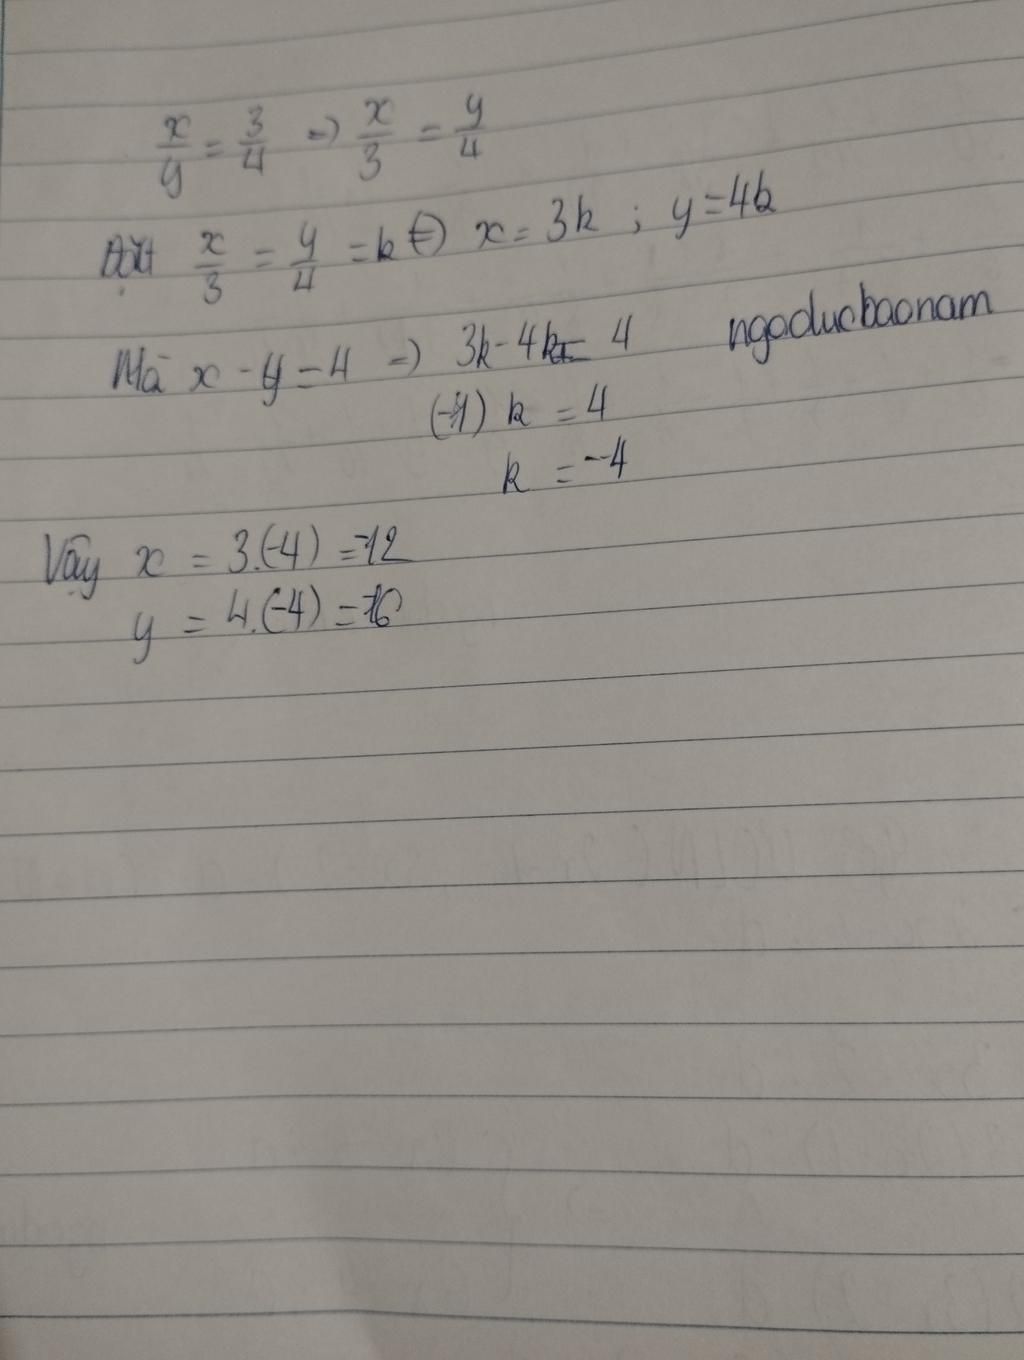 x/y = 3/4 => x/3 = y/4
Đặt x/3 = y/4 = k (=) x = 3k ; y = 4k
Mà x - y = 4 => 3k - 4k = 4
ngoducbaonam
(-1) k = 4
k = -4
Vậy x = 3.(-4) = -12
y = 4.(-4) = -16